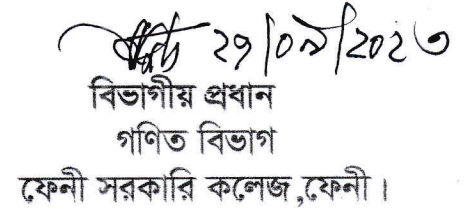 ২৭/০৯/২০২৩
বিভাগীয় প্রধান
গণিত বিভাগ
ফেনী সরকারি কলেজ,ফেনী।